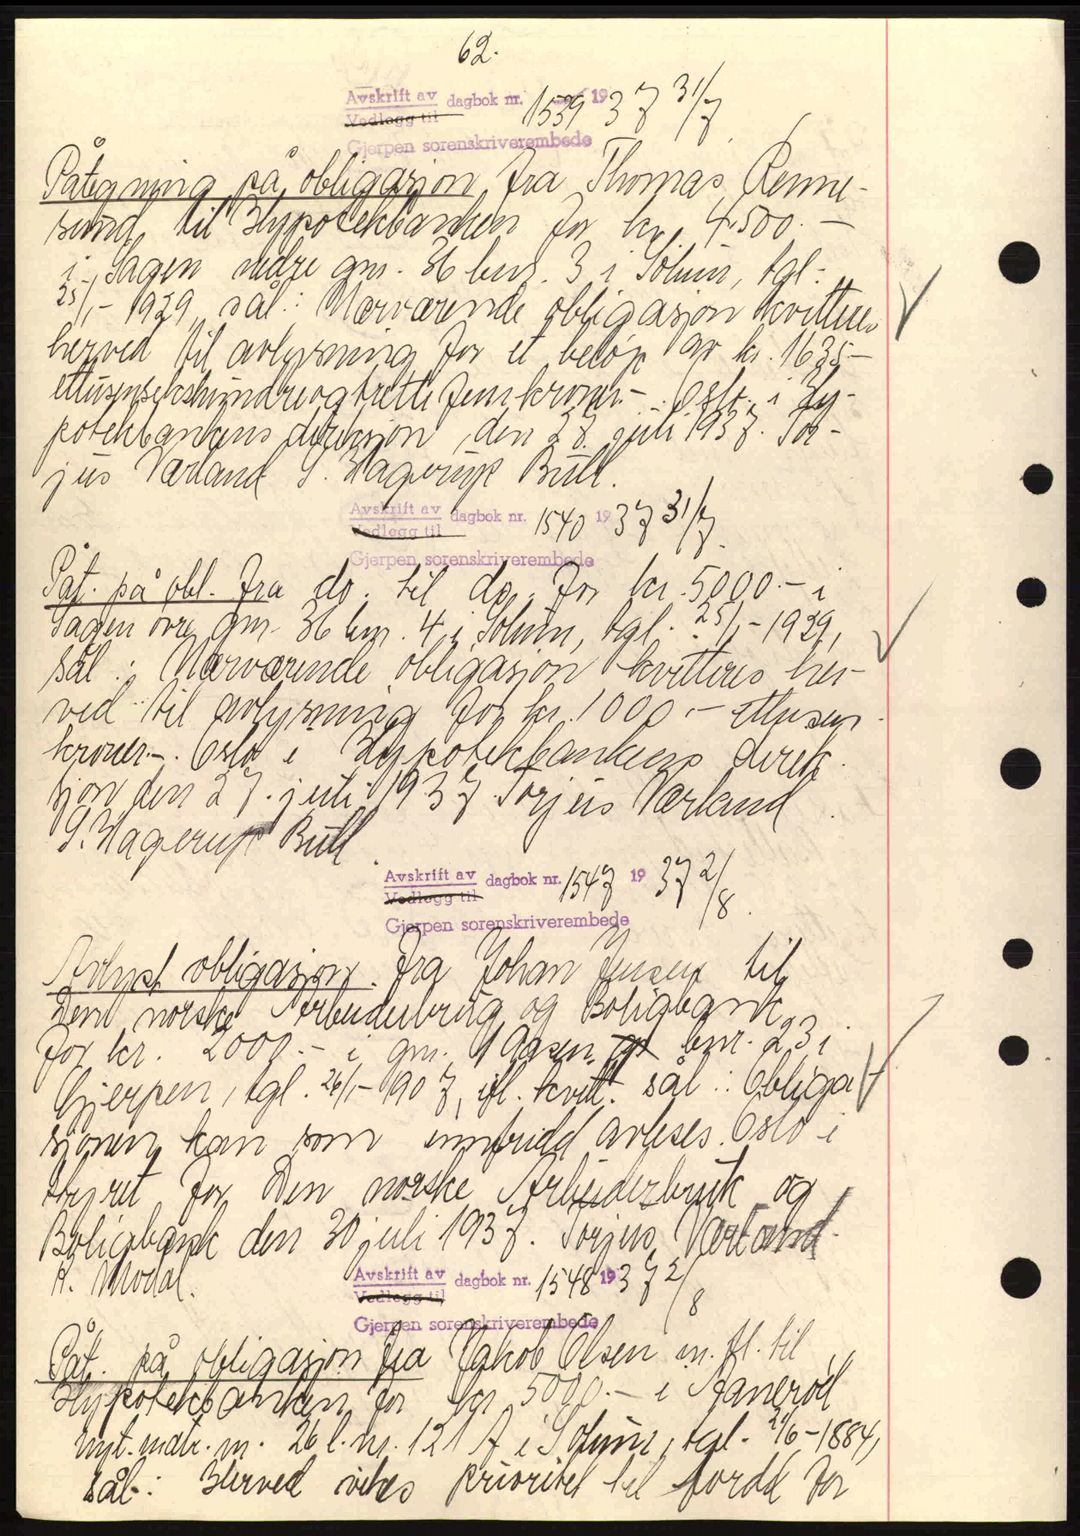 62.
Avskrift av dagbok nr. 1539 1937 31/7
Vedlegg til
Gjerpen sorenskriverembede
Påtegning på obligasjon fra Thomas Renne-
sund til Hypotekbanken for kr. 4.500.-
i Sagen nedre gnr. 36 bnr. 3 i Solum, tgl.
25/1-1929 sål: Nærværende obligasjon kvitteres
herved til avlysning for et beløp av kr. 1635-
ettusensekshundreogtrettifemkroner-. Oslo i Hy-
potekbankens direksjon, den 27. juli 1937. Tor-
jus Værland S. Hagerup Bull.
Avskrift av dagbok nr. 1540 1937 31/7.
Vedlegg til
Gjerpen sorenskriverembede
Påt. på obl. fra do. til do. for kr. 5000.- i
Sagen øvre gnr. 36 bnr. 4, i Solum, tgl. 25/1-1929,
sål: Nærværende obligasjon kvitteres her-
ved til avlysning for kr. 1000.- ettusen
kroner-. Oslo i Hypotekbankens direk
sjon den 27. juli 1937. Torjus Værland
S. Hagerup Bull
Avskrift av dagbok nr. 1547 1937 2/8.
Vedlegg til
Gjerpen sorenskriverembede
Avlyst obligasjon fra Johan Jensen til
Den norske Arbeiderbruk og Boligbank
for kr. 2000.- i gnr. 1 bnr. 23 i
Gjerpen, tgl. 26/1-1907, ifl. kvitt. sål: Obliga
sjonen kan som innfridd avleses. Oslo i
styret for Den norske Arbeiderbruk og
Boligbank den 30 juli 1937. Torjus Værland.
A. Modal.
Avskrift av dagbok nr. 1548 1937 2/8
Vedlegg til
Gjerpen sorenskriverembede
Påt. på obligasjon fra Jakob Olsen m. fl. til
Hypotekbanken for kr. 5000.- i
nyt. matr. nr. 26 l. nr. 121 A i Solum, tgl. /6-1884,
sål: Herved vikes prioritet til fordel for